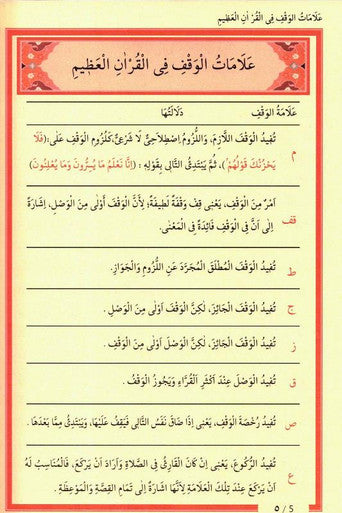 عَلَامَاتُ الْوَقْفِ فِي الْقُرْاٰنِ الْعَظِيمِ
عَلَامَاتُ الْوَقْفِ فِي الْقُرْاٰنِ الْعَظِيمِ
عَلَامَةُ الْوَقْفِ دَلَالَتُهَا
م تُفِيدُ الْوَقْفَ اللَّازِمَ، وَاللُّزُومُ اِصْطِلَاحِيٌّ لَا شَرْعِيٌّ، كَلُزُومِ الْوَقْفِ عَلَى: (فَلَا
يَحْزُنْكَ قَوْلُهُمْ)، ثُمَّ يَبْتَدِئُ التَّالِى بِقَوْلِهِ: (اِنَّا نَعْلَمُ مَا يُسِرُّونَ وَمَا يُعْلِنُونَ)
قف اَمْرٌ مِنَ الْوَقْفِ، يَعْنِى قِفْ وَقْفَةً لَطِيفَةً؛ لِاَنَّ الْوَقْفَ اَوْلَى مِنَ الْوَصْلِ، اِشَارَةً
اِلَى اَنَّ فِى الْوَقْفِ فَائِدَةً فِى الْمَعْنَى.
ط تُفِيدُ الْوَقْفَ الْمُطْلَقَ الْمُجَرَّدَ عَنِ اللُّزُومِ وَالْجَوَازِ.
ج تُفِيدُ الْوَقْفَ الْجَائِزَ، لَكِنَّ الْوَقْفَ اَوْلَى مِنَ الْوَصْلِ.
ز تُفِيدُ الْوَقْفَ الْجَائِزَ، لَكِنَّ الْوَصْلَ اَوْلَى مِنَ الْوَقْفِ.
ق تُفِيدُ الْوَصْلَ عِنْدَ اَكْثَرِ الْقُرَّاءِ وَيَجُوزُ الْوَقْفُ.
ص تُفِيدُ رُخْصَةَ الْوَقْفِ، يَعْنِى اِذَا ضَاقَ نَفَسُ التَّالِى فَيَقِفُ عَلَيْهَا، وَيَبْتَدِئُ مِمَّا بَعْدَهَا.
ع تُفِيدُ الرُّكُوعَ، يَعْنِى اِنْ كَانَ الْقَارِئُ فِى الصَّلَاةِ وَاَرَادَ اَنْ يَرْكَعَ، فَالْمُنَاسِبُ لَهُ
اَنْ يَرْكَعَ عِنْدَ تِلْكَ الْعَلَامَةِ لِاَنَّهَا اِشَارَةٌ اِلَى تَمَامِ الْقِصَّةِ وَالْمَوْعِظَةِ.
٥ / 5